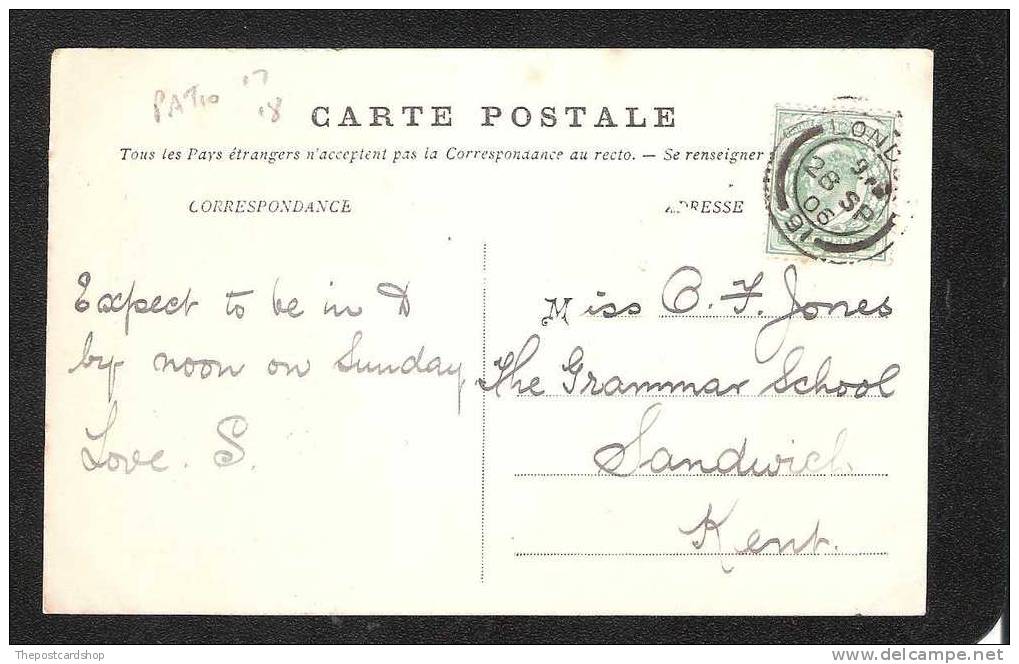 PATIO 17
18
CARTE POSTALE
Tous les Pays étrangers n'acceptent pas la Correspondance au recto. — Se renseigner
CORRESPONDANCE
ADRESSE
LONDON
28 SP
06
91
Expect to be in D
by noon on Sunday
Love. S.
Miss C. F. Jones
The Grammar School
Sandwich
Kent.
Thepostcardshop
delcampe.net